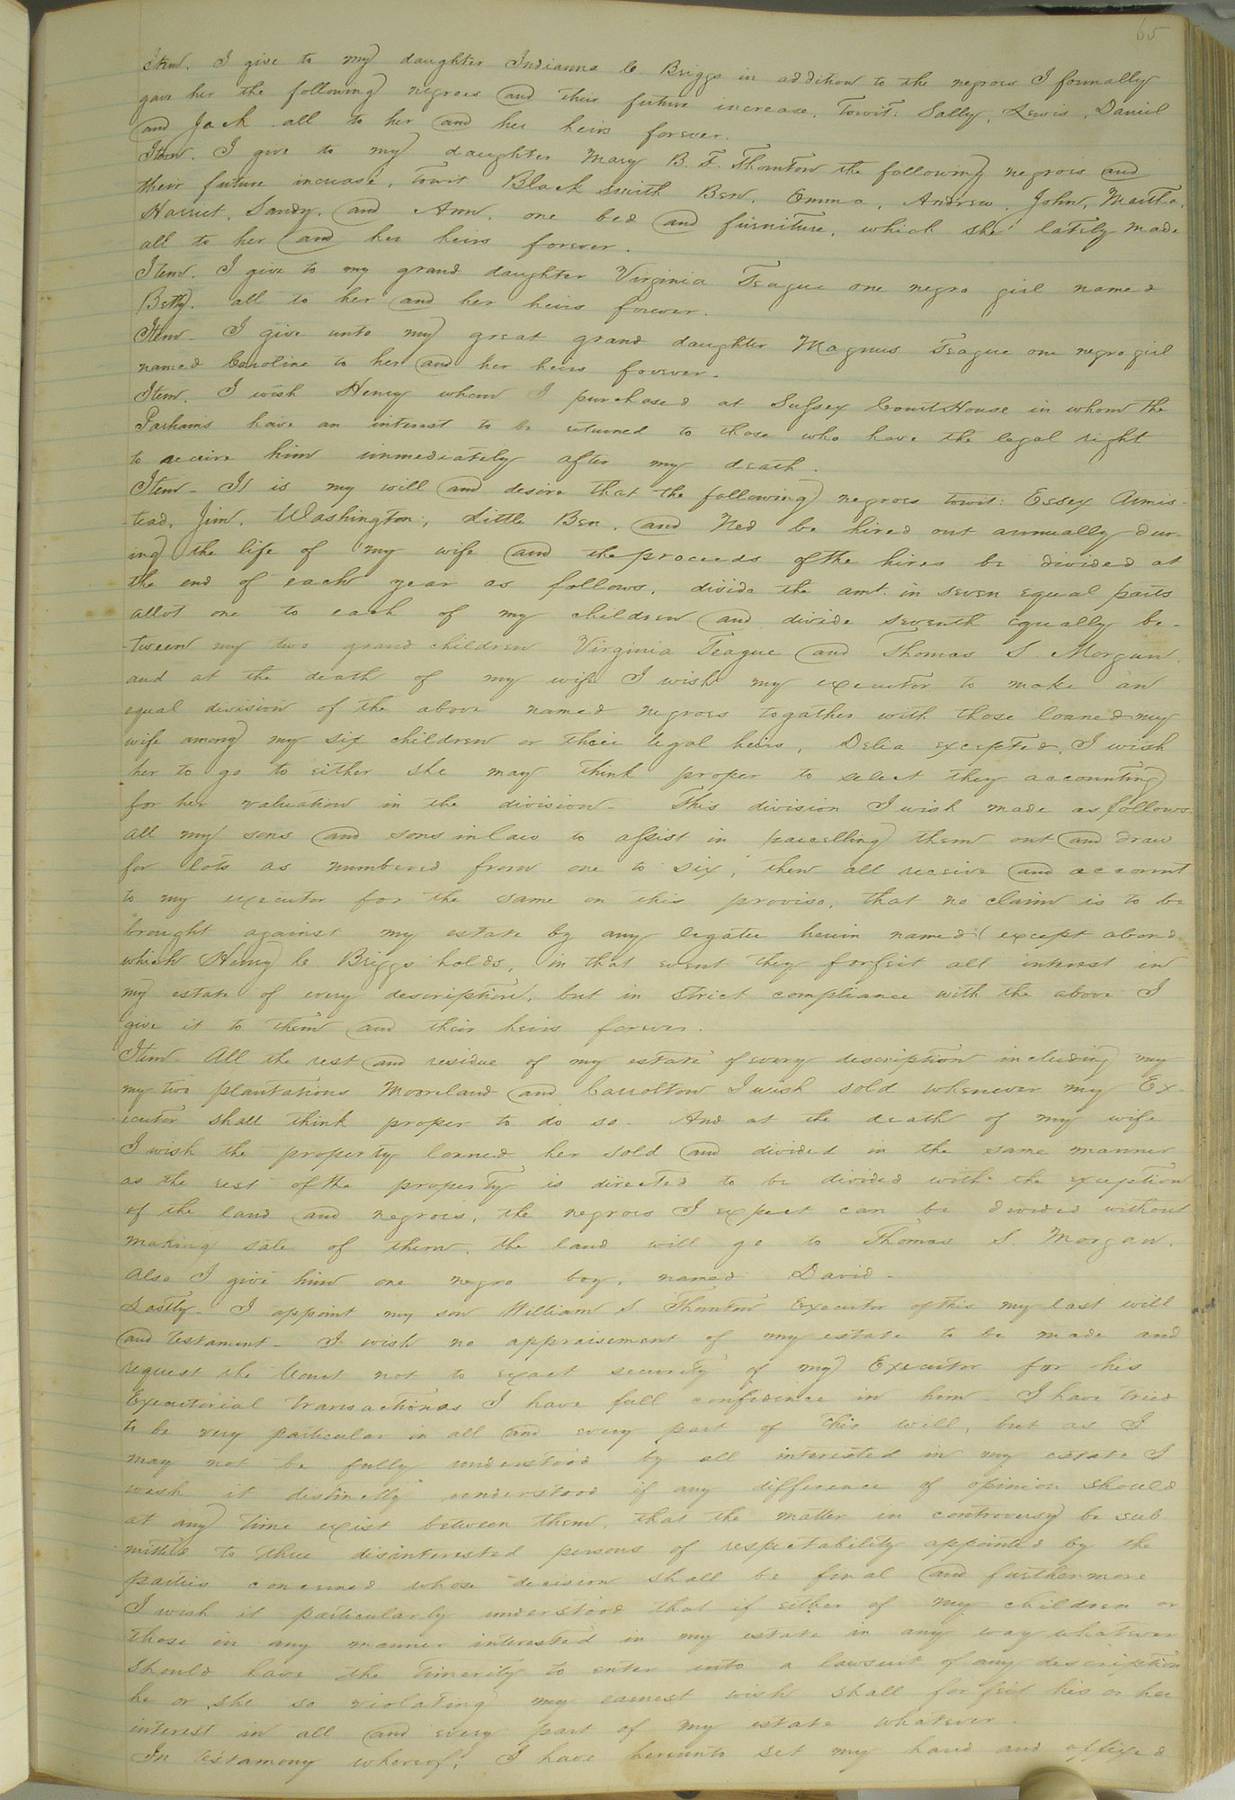 65
Item. I give to my daughter Indianna C Briggs in addition to the negroes I formally
gave her the following negroes and their future increase, Towit: Sally, Lewis, Daniel
and Jack all to her and her heirs forever.
Item. I give to my daughter Mary B. F. Thornton the following negroes and
their future increase, towit Black Smith Ben, Emma, Andrew, John, Martha,
Harriet, Sandy, and Ann, one bed and furniture, which she lately made
all to her and her heirs forever.
Item. I give to my grand daughter Virginia Teague one negro girl named
Betty. all to her and her heirs forever.
Item - I give unto my great grand daughter Magnus Teague one negro girl
named Caroline to her and her heirs forever.
Item. I wish Henry whom I purchased at Sussex Court House in whom the
Parhams have an interest to be returned to those who have the legal right
to receive him immediately after my death.
Item - It is my will and desire that the following negroes towit: Essex Armis-
-tead, Jim, Washington, Little Ben, and Ned be hired out annually dur-
ing the life of my wife and the proceeds of the hires be divided at
the end of each year as follows, divide the amt. in seven equal parts
allot one to each of my children and divide seventh equally be-
-tween my two grand children Virginia Teague and Thomas S Morgan.
and at the death of my wife I wish my executor to make an
equal division of the above named negroes togather with those loaned my
wife among my six children or their legal heirs, Delia excepted, I wish
her to go to either she may think proper to select they accounting
for her valuation in the division - This division I wish made as follows
all my sons and sons in law to assist in parcelling them out and draw
for lots as numbered from one to six, then all receive and account
to my executor for the same on this proviso, that no claim is to be
brought against my estate by any legatee herein named (except abond
which Henry C Briggs holds, in that event they forfeit all interest in
my estate of every description, but in strict compliance with the above I
give it to them and their heirs forever.
Item All the rest and residue of my estate of every description including my
my two plantations Mooreland and Carrolton I wish sold whenever my Ex-
-ecutor shall think proper to do so - And at the death of my wife
I wish the property loaned her sold and divided in the same manner
as the rest of the property is directed to be divided with the exception
of the land and negroes, the negroes I expect can be divided without
making sale of them, the land will go to Thomas S Morgan.
Also I give him one negro boy, named David -
Lastly - I appoint my son William S Thornton Executor of this my last will
and testament - I wish no appraisement of my estate to be made and
request the Court not to exact security of my Executor for his
Executorial transactions I have full confidence in him - I have tried
to be very particular in all and every part of this will, but as I
may not be fully understood by all interested in my estate I
wish it distinctly understood if any difference of opinion should
at any time exist between them, that the matter in controversy be sub
mitted to three disinterested persons of respectability appointed by the
parties concerned whose decision shall be final and furthermore
I wish it particularly understood that if either of my children or
those in any manner interested in my estate in any way whatever
should have the timerity to enter into a lawsuit of any description
he or she so violating my earnest wish shall forfeit his or her
interest in all and every part of my estate whatever.
In testamony whereof, I have hereunto set my hand and affixed